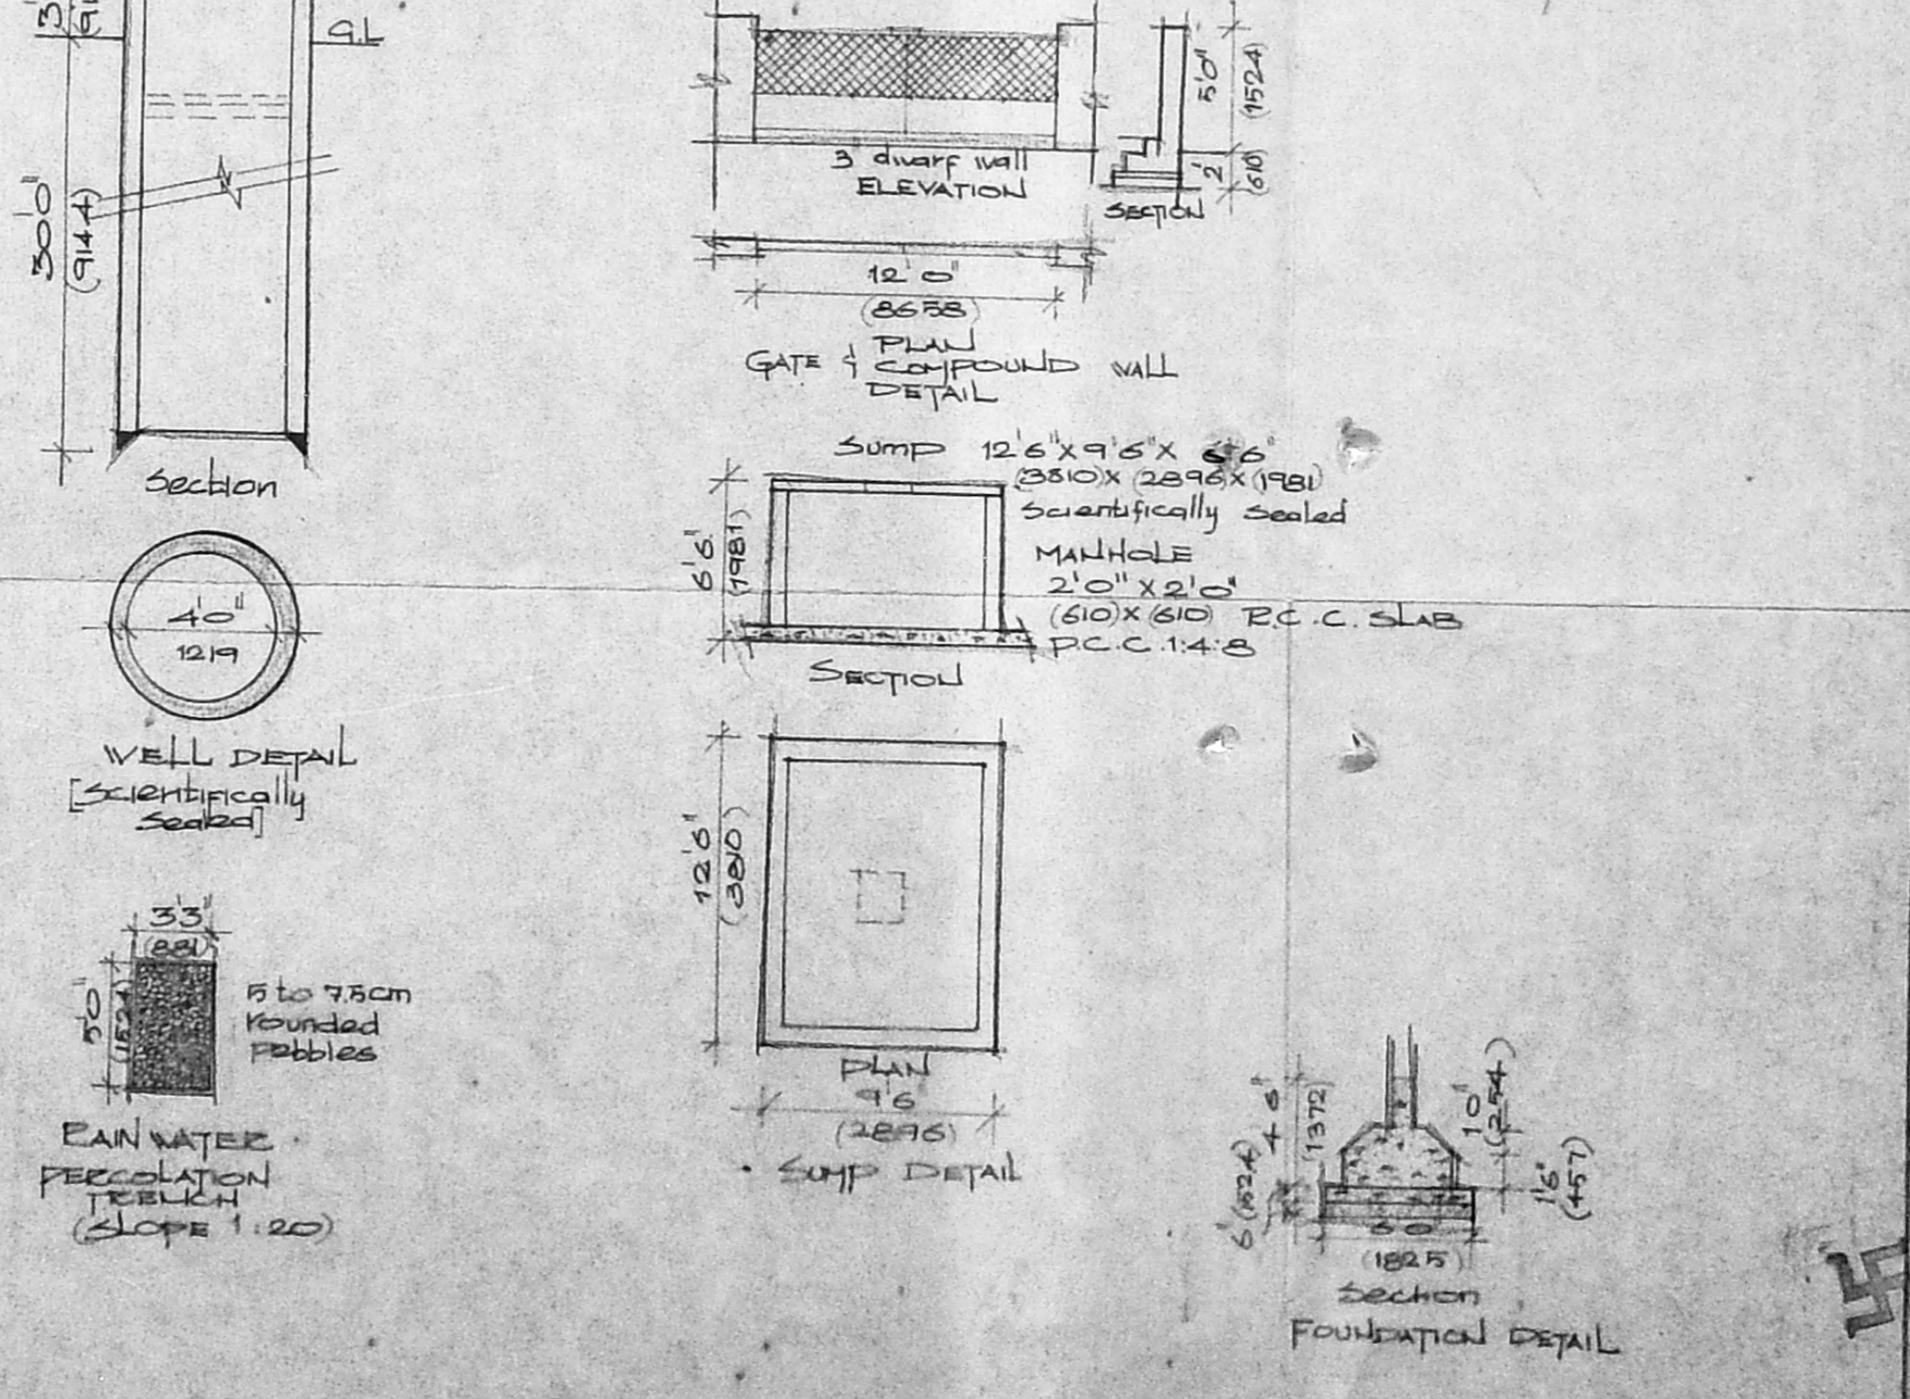 G.L
30'0"
(9144)
Section
4'0"
1219
WELL DETAIL
[Scientifically
Sealed]
3'3"
(881)
5'0"
(1524)
5 to 7.5cm
rounded
pebbles
RAIN WATER
PERCOLATION
TRENCH
(SLOPE 1:20)
3" dwarf wall
ELEVATION
5'0"
(1524)
2'
(610)
SECTION
12'0"
(8658)
PLAN
GATE & COMPOUND WALL
DETAIL
Sump 12'6"X9'6"X 6'6"
(3810)X (2896)X (1981)
Scientifically Sealed
MANHOLE
2'0"X2'0"
(610)X(610) R.C.C. SLAB
P.C.C.1:4:8
6'6"
(1981)
SECTION
12'6"
(3810)
PLAN
9'6"
(2896)
SUMP DETAIL
4'6"
(1372)
1'0"
(254)
1'6"
(457)
6'0"
(1825)
Section
FOUNDATION DETAIL